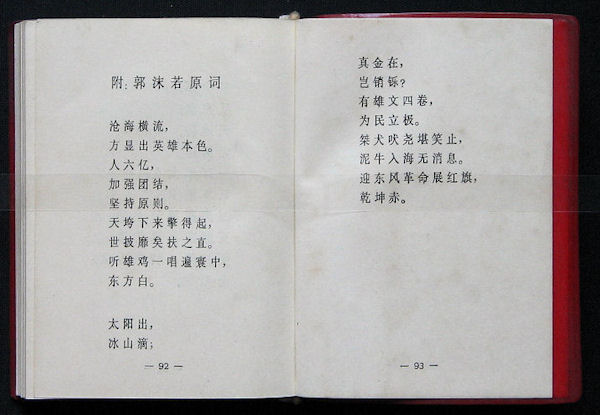 附:郭沫若原词
沧海横流,
方显出英雄本色。
人六亿,
加强团结,
坚持原则。
天垮下来擎得起,
世披靡矣扶之直。
听雄鸡一唱遍寰中,
东方白。
太阳出,
冰山滴;
— 92 —
真金在,
岂销铄?
有雄文四卷,
为民立极。
桀犬吠尧堪笑止,
泥牛入海无消息。
迎东风革命展红旗,
乾坤赤。
— 93 —